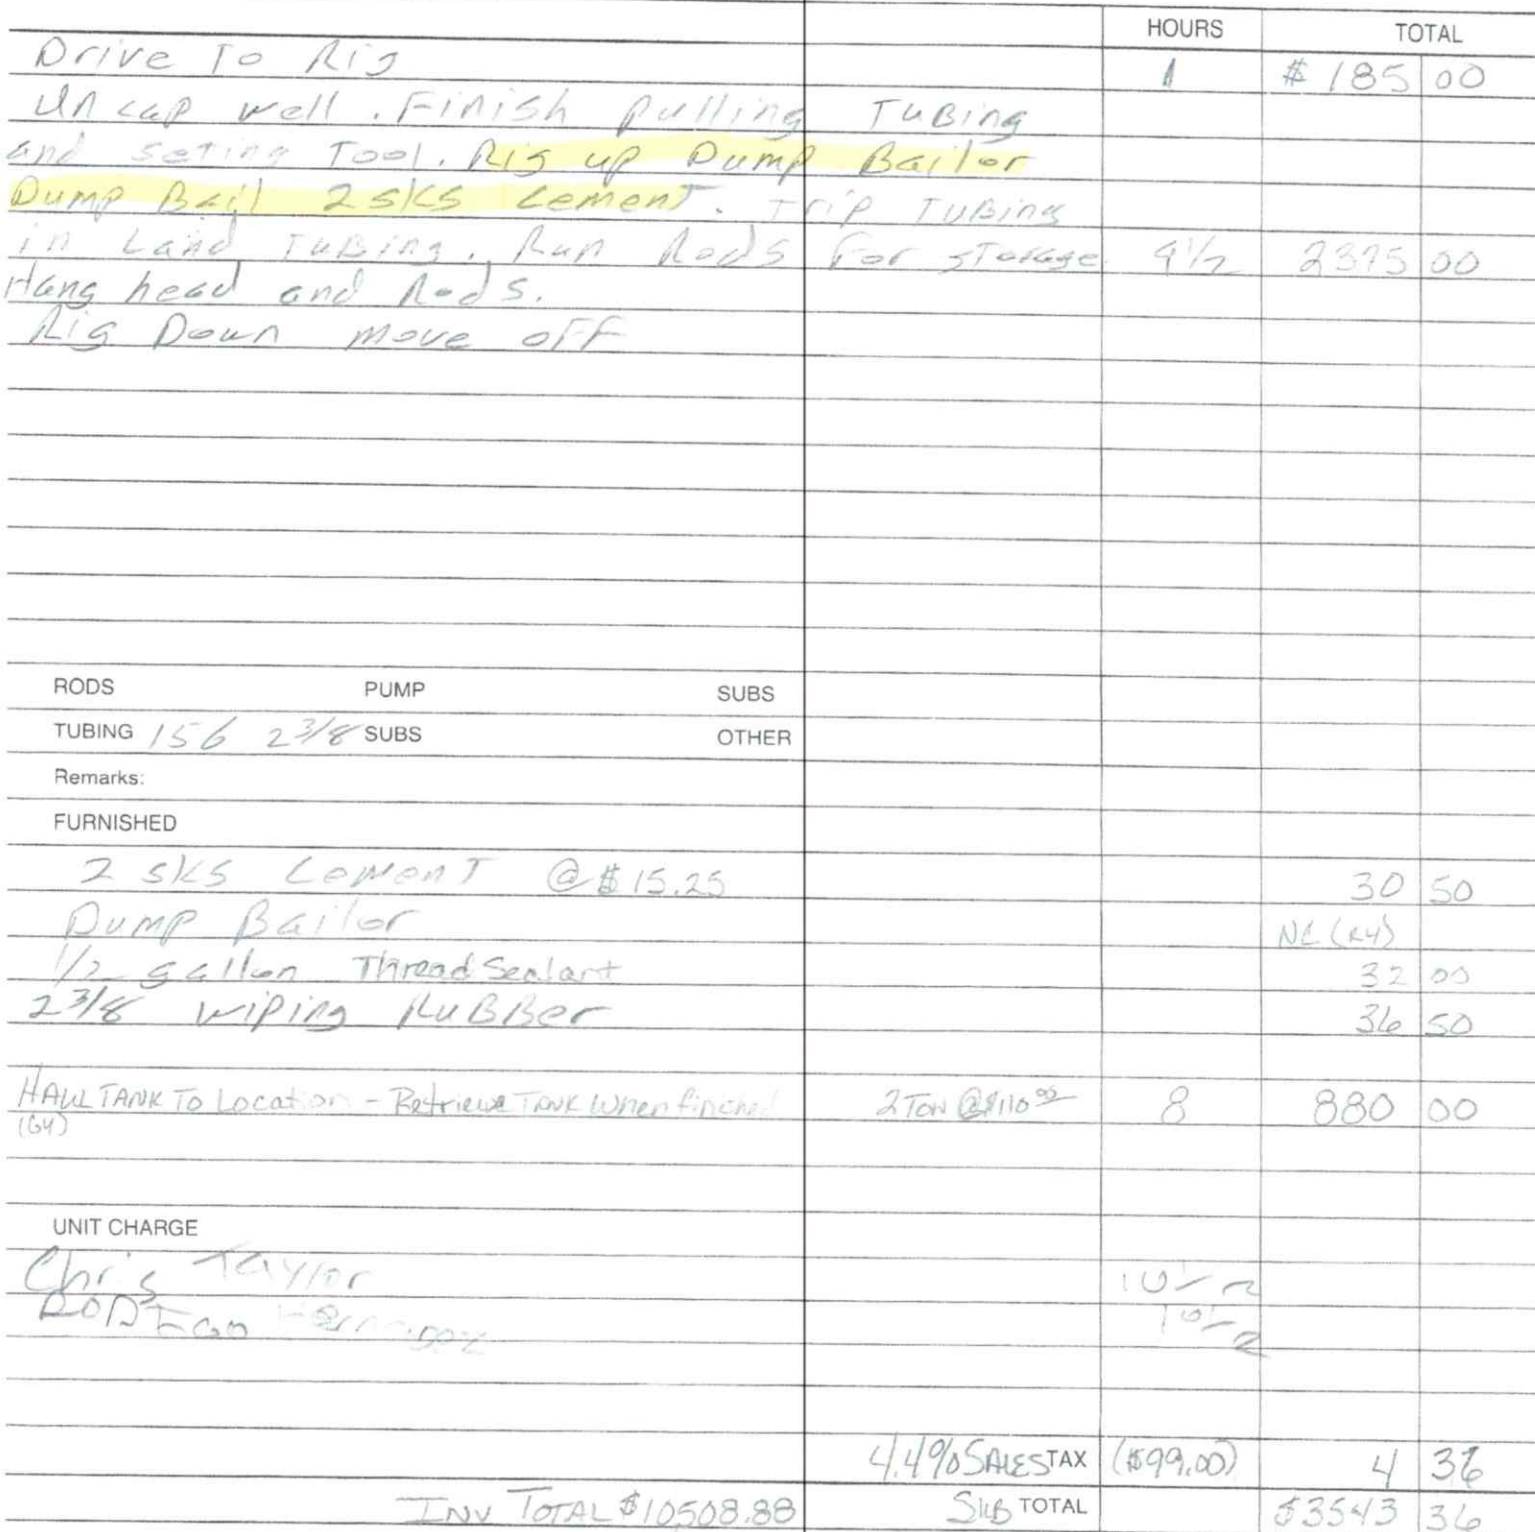 HOURS TOTAL
Drive To Rig 1 $ 185 00
Uncap well. Finish pulling TuBing
and seting Tool. Rig up Dump Bailor
Dump Bail 2 sks Cement. Trip TuBing
in Land TuBing. Run Rods For storage 9 1/2 2375 00
Hang head and Rods.
Rig Down move off
RODS PUMP SUBS
TUBING 156 2 3/8 SUBS OTHER
Remarks:
FURNISHED
2 sks Cement @ $15.25 30 50
Dump Bailor NC (R4)
1/2 gallon Thread Sealant 32 00
2 3/8 wiping RuBBer 36 50
HAUL TANK To Location - Retrieve TANK When finished 2 Ton @ $110 00 8 880 00
(G4)
UNIT CHARGE
Chris Taylor 10 1/2
10 1/2
4.4% SALES TAX ($99.00) 4 36
INV TOTAL $10,508.88 SUB TOTAL $3543 36